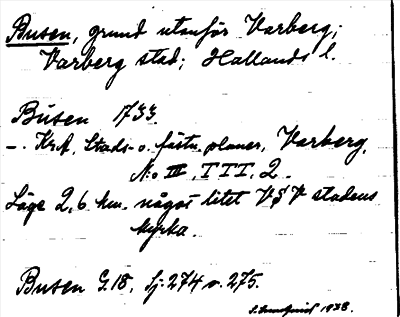 Busen, grund utanför Varberg;
Varberg stad; Hallands l.
Busen 1733.
-. KrA, Stads- o. fästn. planer, Varberg,
N:o III, T T T, 2.
Läge 2,6 km. något litet V§V stadens
kyrka.
Busen G.18, Sj. 274 o. 275.
1938.